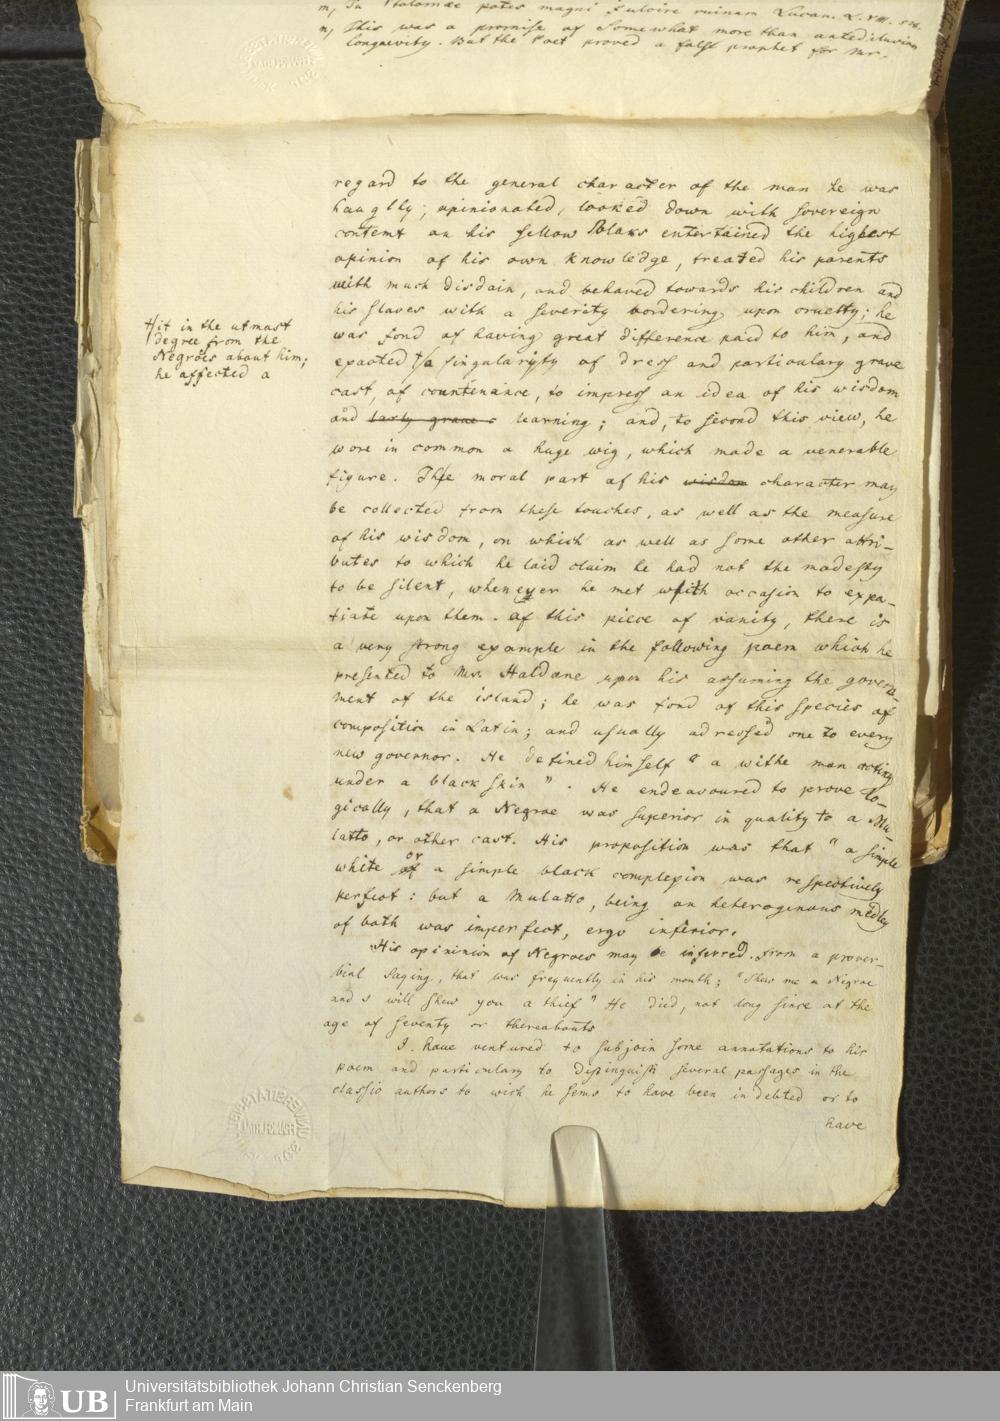 m, Tu Ptolomae potes magni fulcire ruinam Lucan. L. VIII. 528.
n, This was a promise of somewhat more than antediluvian
longuevity. But the Poet proved a falsf prophet for Mr.
regard to the general character of the man he was
haughly; opinionated, looked down with sovereign
contemt on his fellow Blaks entertained the highest
opinion of his own knowledge, treated his parents
with much disdain, and behaved towards his children and
his slaves with a severity bordering upon cruetty; he
was fond of having great difference paid to him, and
exacted # a singularity of dress and particulary grave
cast, of countenance, to impress an idea of his wisdom
and learning; and, to second this view, he
wore in common a huge wig, which made a venerable
figure. The moral part of his wisdom character may
be collected from these touches, as well as the measure
of his wisdom, on which as well as some other attri-
butes to which he laid claim he had not the modesty
to be silent, whenever he met with occasion to expa-
tiate upon them. of this piece of vanity, there is
a very strong example in the following poem which he
presented to Mr. Haldane upon his assuming the govern-
ment of the island; he was fond of this species of
composition in Latin; and usually adressed one to every
new governor. He defined himself "a withe man acting
under a black skin". He endeavoured to prove lo-
gically, that a Negroe was superior in quality to a Mu-
latto, or other cast. His proposition was that "a simple
white or a simple black complexion was respectively
perfect: but a Mulatto, being an heterogenous medley
of both was imperfect, ergo inferior.
His opininion of Negroes may be inferred from a prover-
bial saying, that was frequently in his mouth; "Shew me a Negroe
and I will shew you a thief" He died, not long since at the
age of seventy or thereabouts
I have ventured to subjoin some annotations to his
poem and particulary to distinguish several passages in the
classic authors to wich he sems to have been indebted or to
have
# it in the utmost
degree from the
Negroes about him;
he affected a
UB
Universitätsbibliothek Johann Christian Senckenberg
Frankfurt am Main